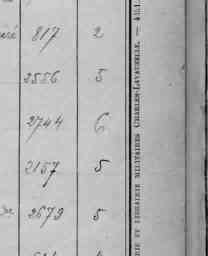 817 2
2556 5
2744 6
2157 5
2679 5
RIE ET LIBRAIRIE MILITAIRES CHARLES-LAVAUZELLE. —